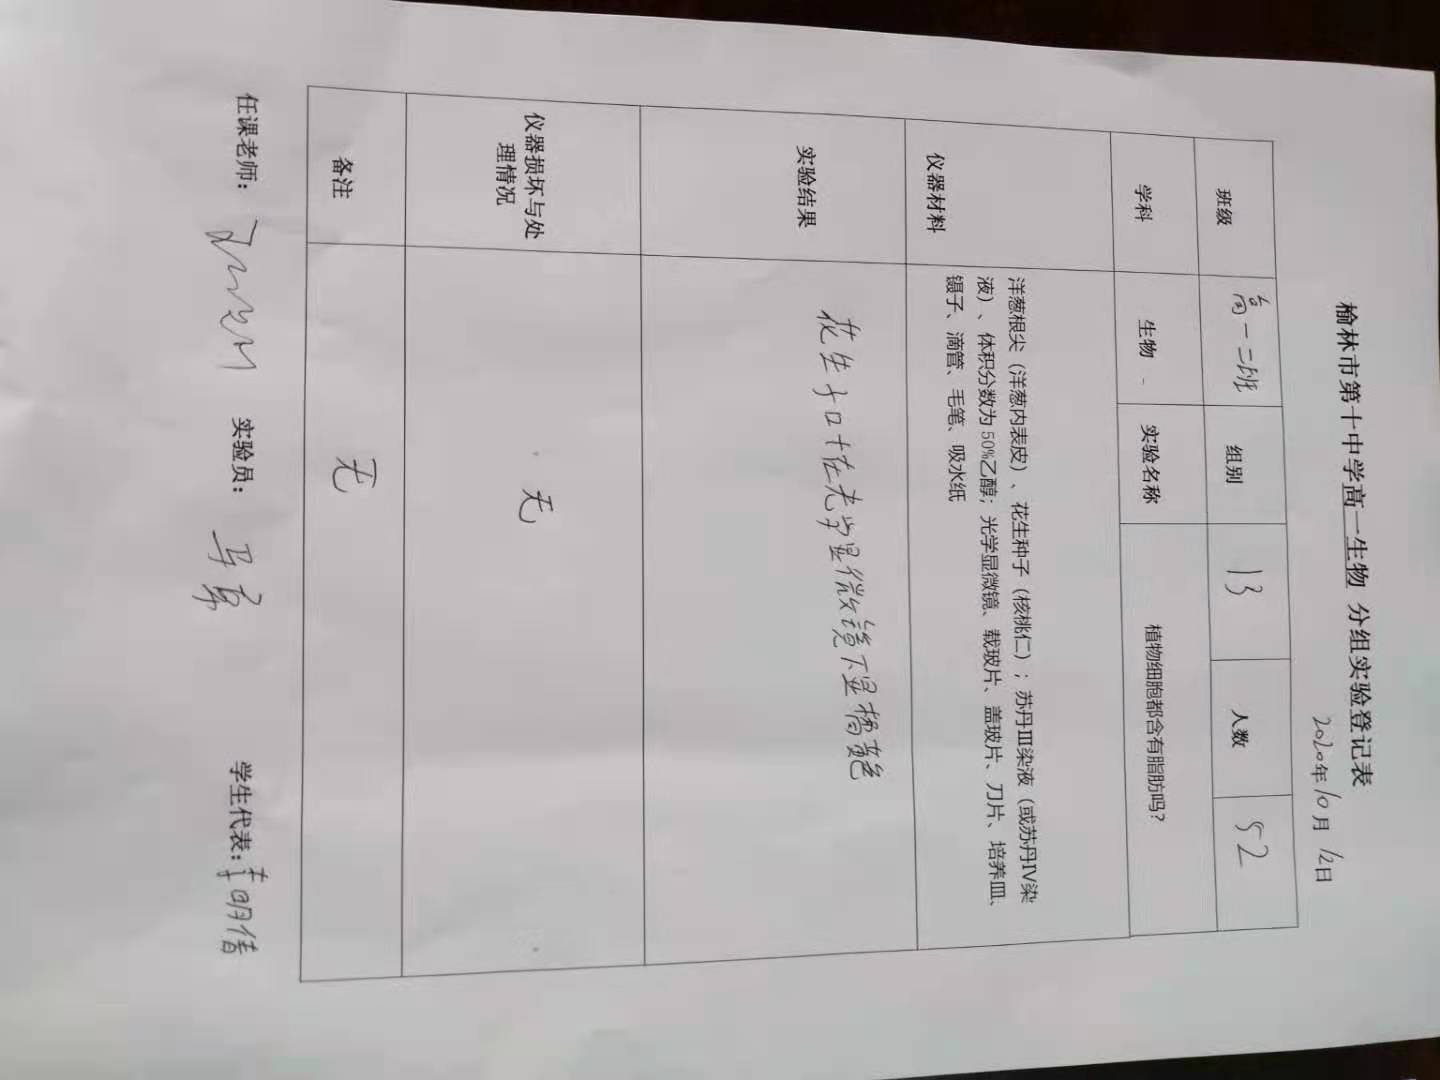 榆林市第十中学高一生物 分组实验登记表
2020年10月12日
班级 高一二班 组别 13 人数 52
学科 生物 实验名称 植物细胞都含有脂肪吗?
仪器材料
洋葱根尖（洋葱内表皮）、花生种子（核桃仁）; 苏丹Ⅲ染液（或苏丹Ⅳ染
液）、体积分数为50%乙醇; 光学显微镜、载玻片、盖玻片、刀片、培养皿、
镊子、滴管、毛笔、吸水纸
实验结果
花生子叶在光学显微镜下呈橘黄色
仪器损坏与处
理情况
无
备注 无
任课老师: 实验员: 学生代表: 李明倩